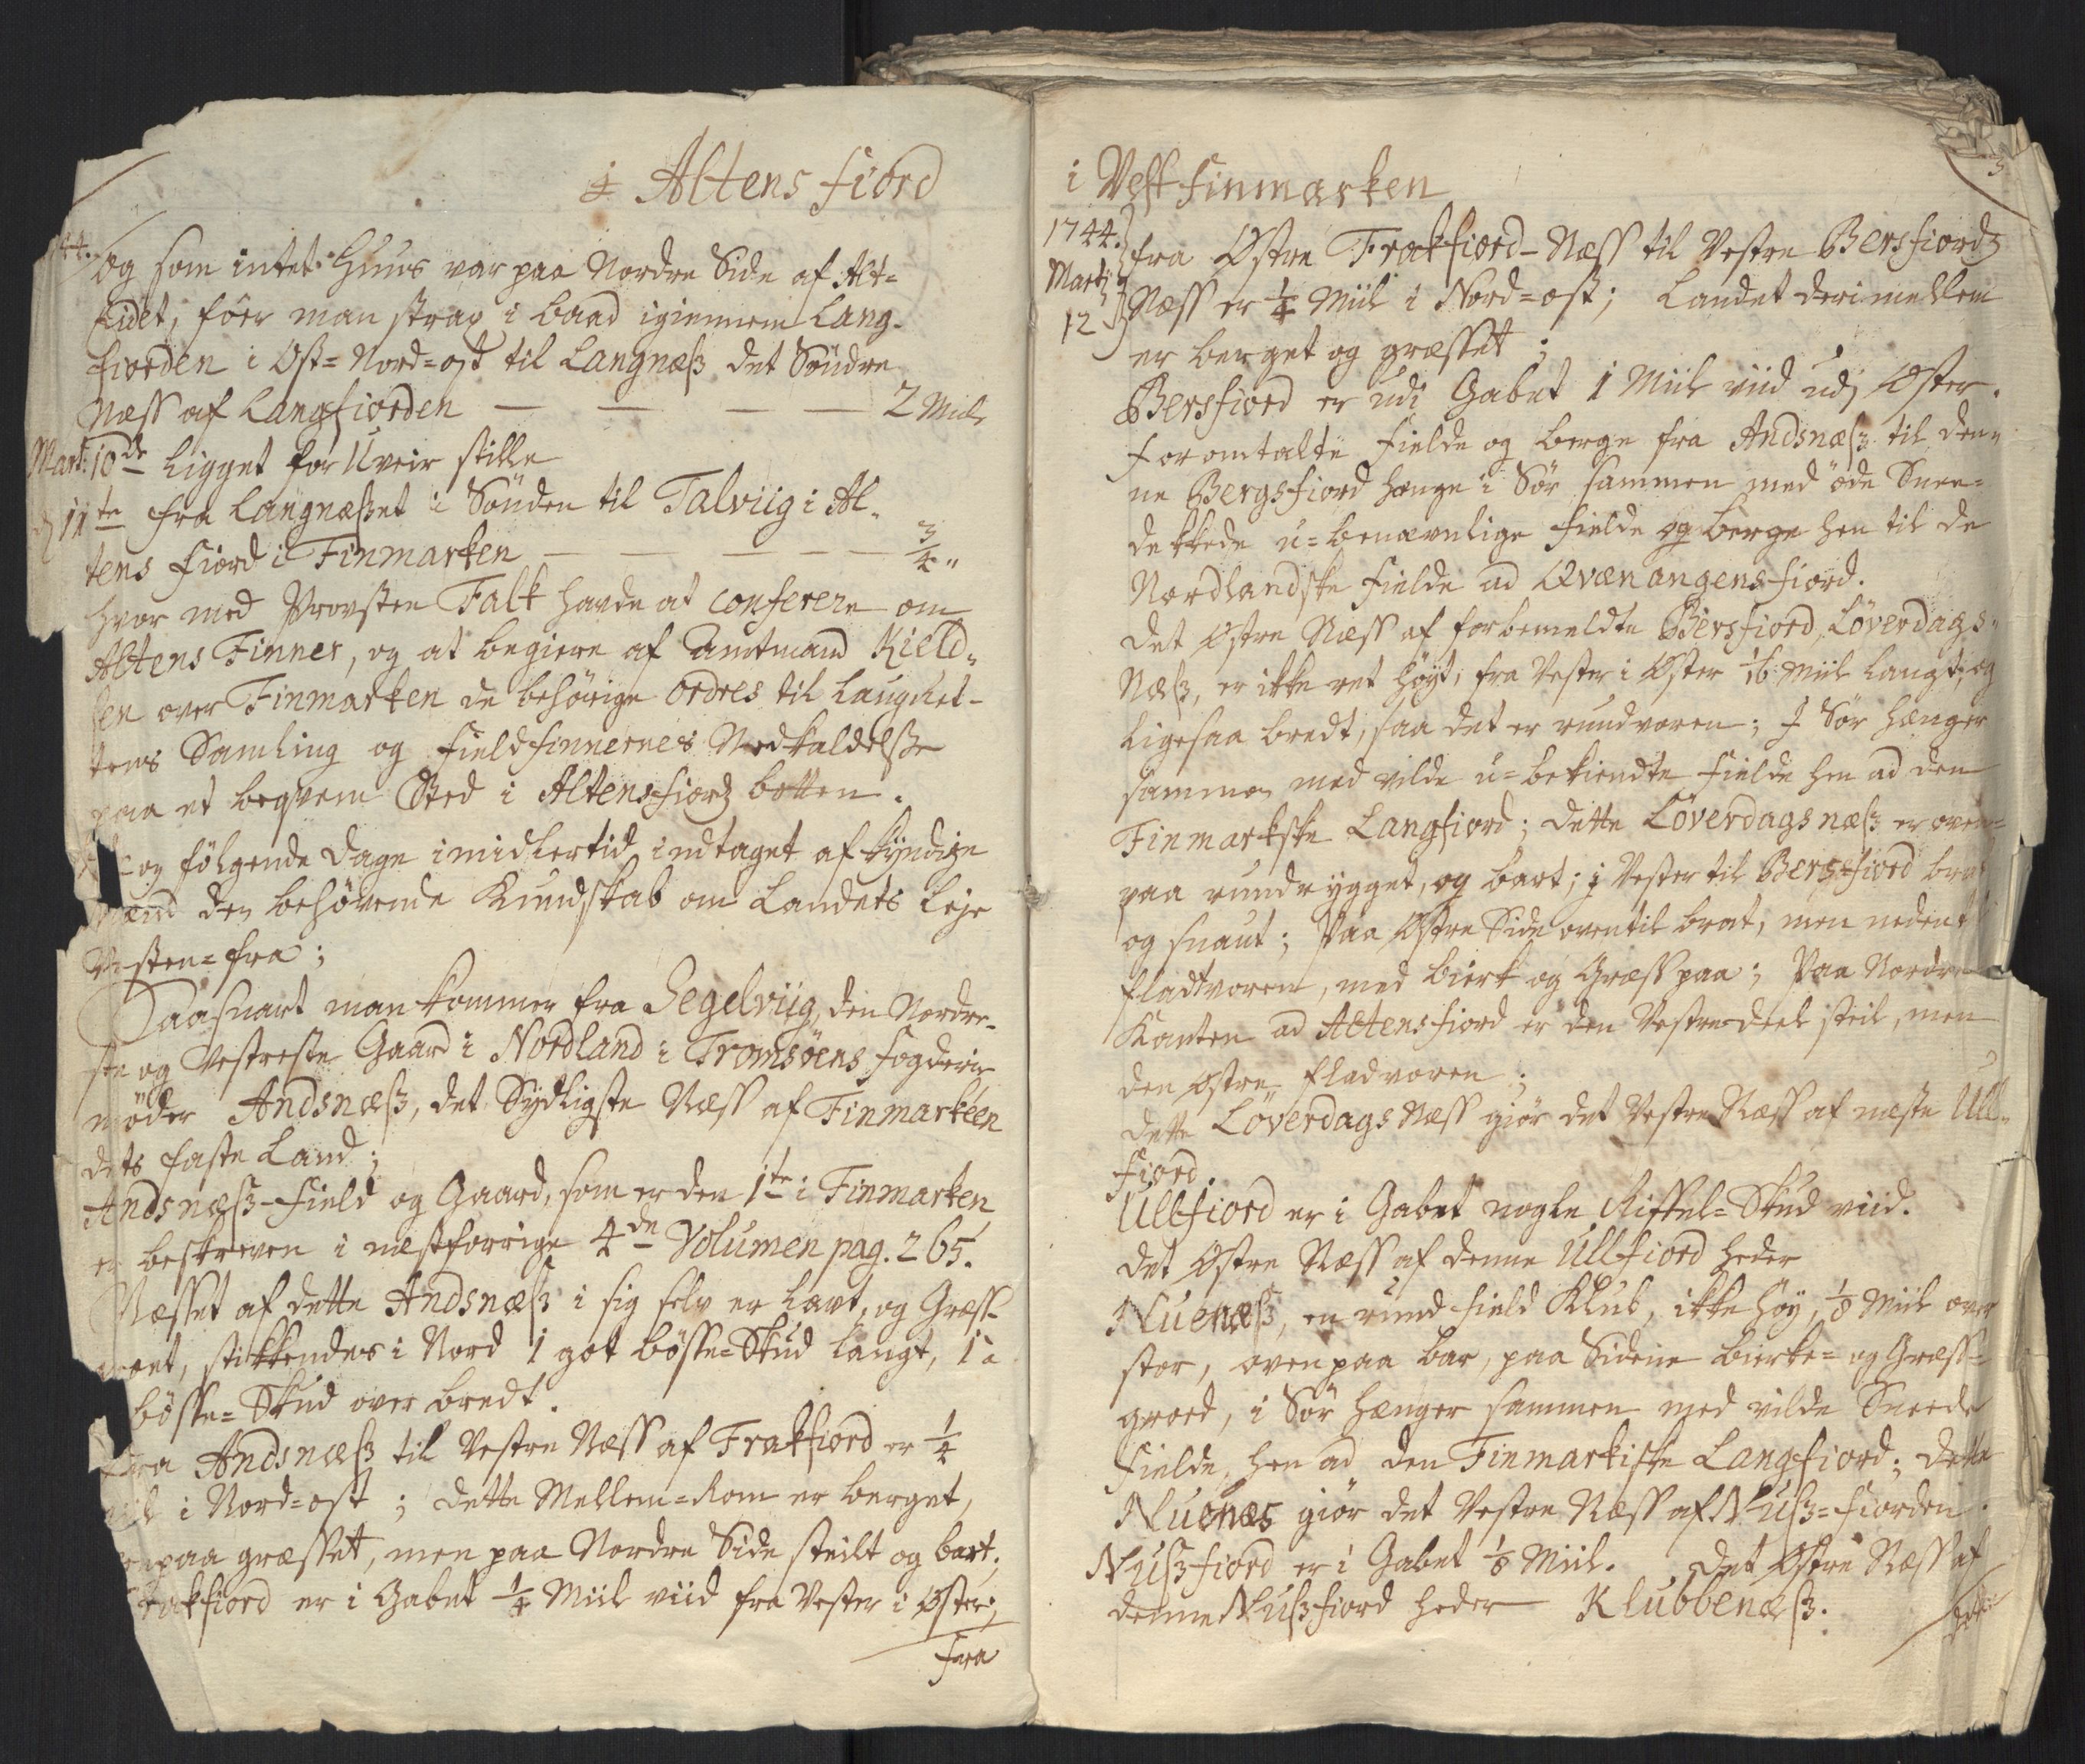 i Altens Fiord
44.
og som intet Huus var paa Nordre Side af Alt-
Eidet, föer man strax i baad igiennem Lang-
fiorden i Ost=Nord=ost til Langnæß det Söndre
Næss af Langfiorden — — — — 2 Miile
Mart: 10de ligget for Uveir stille
11te fra Langnæßet i Sönden til Talviig i Al-
tens Fiord i Finmarken — — — — 3/4 "
hvor med Provsten Falk havde at conferere om
Altens Finner, og at begiere af Amtmand Kield-
sen over Finmarken de behörige ordres til Laugret-
tens Samling og Fieldfinnernes Nedkaldelsse
paa et beqvem Sted i Altensfiords botten.
og fölgende Dage imidlertid indtaget af kyndige
Mænd den behövende Kundskab om Landets Leje
Vesten=fra;
Saasnart man kommer fra Segelviig, den Nordre-
ste og Vestreste Gaard i Nordland i Tromsöens Fogderie
möder Andsnæß, det Sydligste Næss af Finmarkeen
dets faste Land;
Andsnæß-Field og Gaard, som er den 1te i Finmarken
er beskreven i næstforrige 4de Volumen pag. 265.
Næsset af dette Andsnæß i sig selv er lavt, og Græss-
groet, stikkendes i Nord 1 got bösse=Skud langt, 1
bösse=Skud over bredt.
Fra Andsnæß til Vestre Næss af Frakfiord er 1/4
Miil i Nord=ost; dette Mellem=Rom er berget,
ovenpaa græsset, men paa Nordre Side steilt og bart;
Frakfiord er i Gabet 1/4 Miil viid fra Vester i Oster;
Fra
3
i Vest Finmarken
1744.
Martj
12
fra Ostre Frakfiord-Næss til Vestre Bersfiords
Næss er 1/4 Miil i Nord=ost; Landet derimellem
er berget og græsset;
Bersfiord er udi Gabet 1 Miil viid udj Oster.
Foromtalte Fielde og berge fra Andsnæß til den-
ne Bergsfiord hænge i Sör sammen med öde Snee-
dekkede u=benævnlige Fielde og berge hen til de
Nordlandske Fielde ad Qvænangensfiord.
Det Ostre Næss af forbemeldte Bersfiord, Löverdags-
Næß, er ikke ret höyt, fra Vester i Oster 1/16 Miil langt, og
ligesaa bredt, saa det er rundvoren; I Sör hænger
sammen med vilde u=bekiendte Fielde hen ad den
Finmarkske Langfiord; dette Löverdagsnæß er oven-
paa rundrygget, og bart; i Vester til Bersfiord brat
og snaut; Paa Ostre Side oventil brat, men nedent
fladtvoren, med birk og Græss paa; Paa Nordre
Kanten ad Altensfiord er den Vestre deel steil, men
den Ostre fladvoren;
dette Löverdags Næss giör det Vestre Næss af næste Ull-
fiord.
Ullfiord er i Gabet nogle Riffel=Skud viid.
Det Ostre Næss af denne Ullfiord heder
Nuenæß, en rund Field Klub, ikke höy, 1/8 Miil over
stor, oven paa bar, paa Siderne birke= og Græss=
groed, i Sör hænger sammen med vilde Sneede
Fielde, hen ad den Finmarkiske Langfiord; dette
Nuenæs giör det Vestre Næss af Nuß=fiorden.
Nußfiord er i Gabet 1/8 Miil. Det Ostre Næss af
denne Nußfiord heder Klubbenæß.
dette